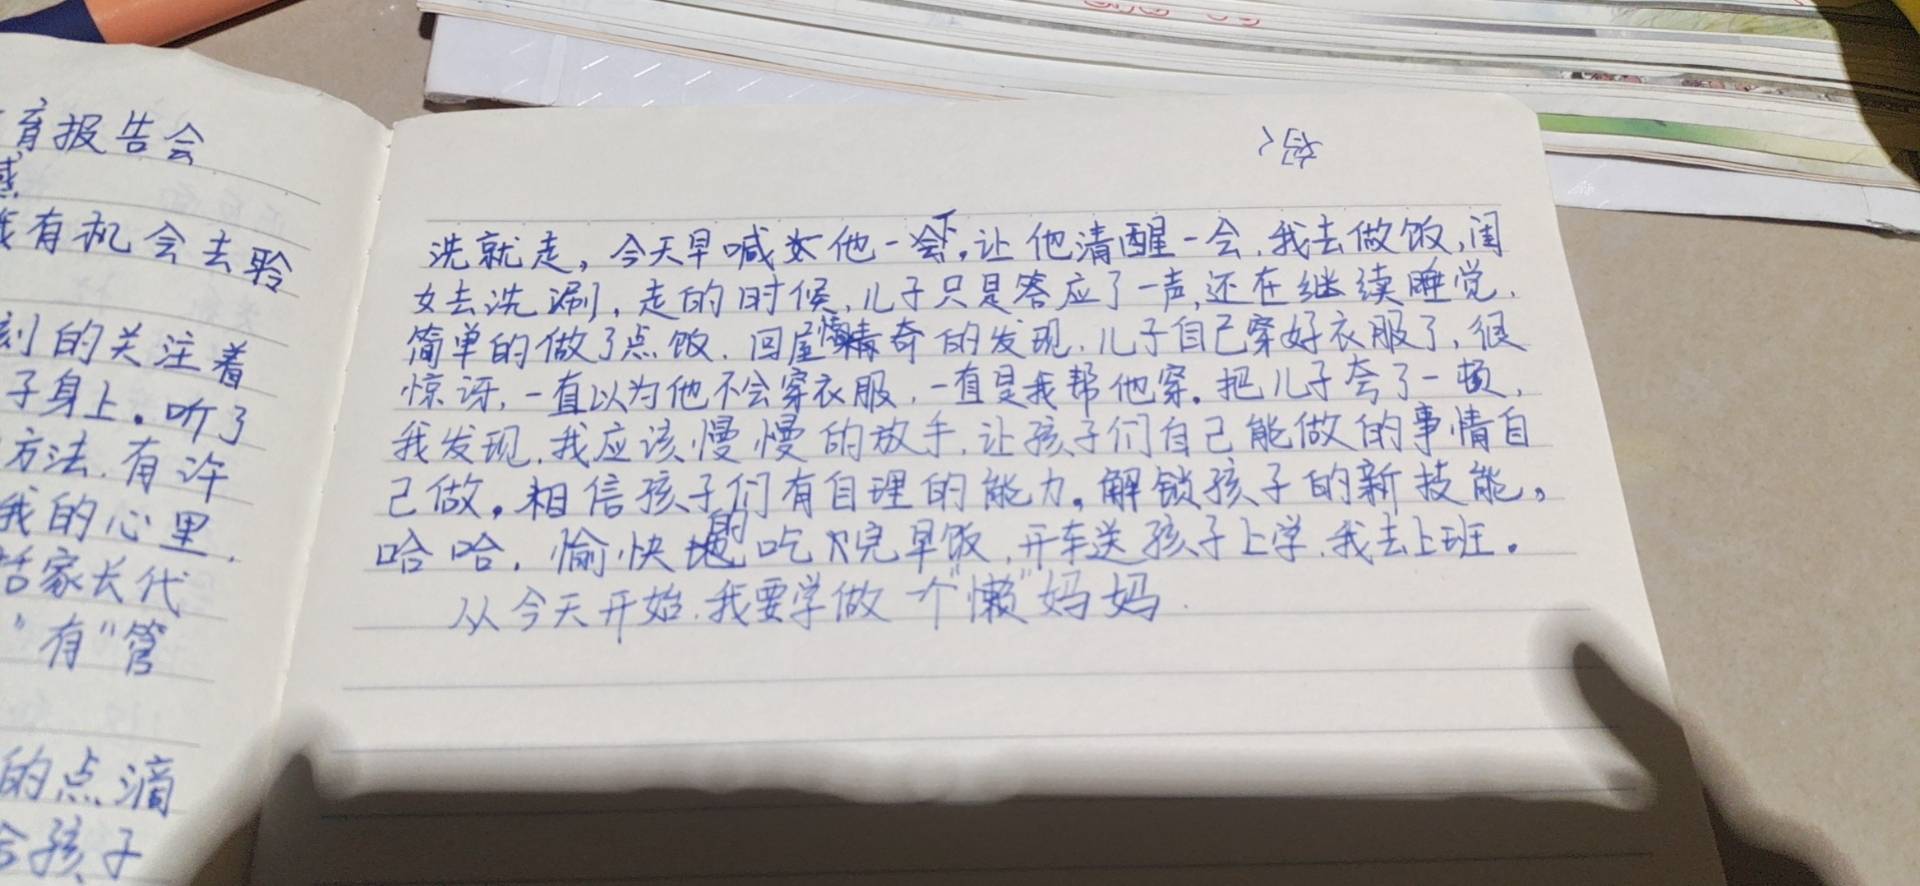 育报告会
感
我有机会去聆
刻的关注着
子身上。听了
方法,有许
我的心里,
括家长代
"有"管
的点滴
给孩子
洗就走,今天早喊他一下。让他清醒一会,我去做饭,闺
女去洗涮,走的时候,儿子只是答应了一声,还在继续睡觉,
简单的做了点饭,回屋惊奇的发现,儿子自己穿好衣服了,很
惊讶,一直以为他不会穿衣服,一直是我帮他穿。把儿子夸了一顿,
我发现,我应该慢慢的放手,让孩子们自己能做的事情自
己做。相信孩子们有自理的能力。解锁孩子的新技能。
哈哈,愉快的吃完早饭,开车送孩子上学,我去上班。
从今天开始,我要学做一个"懒"妈妈.